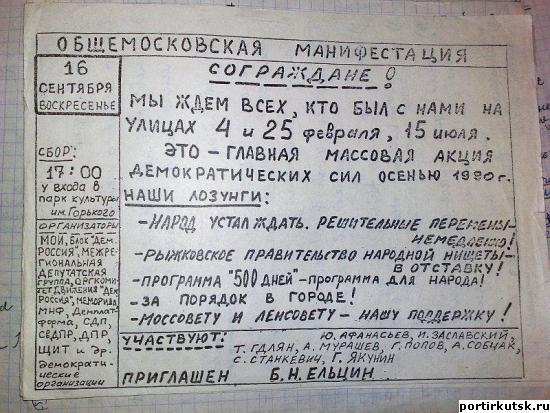 ОБЩЕМОСКОВСКАЯ МАНИФЕСТАЦИЯ
16
СЕНТЯБРЯ
ВОСКРЕСЕНЬЕ
СБОР:
17:00
У ВХОДА В
ПАРК КУЛЬТУРЫ
им. Горького
ОРГАНИЗАТОРЫ
МОИ, БЛОК "ДЕМ.
РОССИЯ", МЕЖРЕ-
ГИОНАЛЬНАЯ
ДЕПУТАТСКАЯ
ГРУППА, ОРГКОМИ-
ТЕТ ДВИЖЕНИЯ "ДЕМ
РОССИЯ", МЕМОРИАЛ
МНФ, ДЕМПЛАТ-
ФОРМА, СДП,
СЕДПР, ДПР,
ЩИТ и др.
демократи-
ческие
организации
СОГРАЖДАНЕ!
МЫ ЖДЕМ ВСЕХ, КТО БЫЛ С НАМИ НА
УЛИЦАХ 4 и 25 февраля, 15 июля.
ЭТО – ГЛАВНАЯ МАССОВАЯ АКЦИЯ
ДЕМОКРАТИЧЕСКИХ СИЛ ОСЕНЬЮ 1990 г.
НАШИ ЛОЗУНГИ:
- НАРОД УСТАЛ ЖДАТЬ. РЕШИТЕЛЬНЫЕ ПЕРЕМЕНЫ-
НЕМЕДЛЕННО!
- РЫЖКОВСКОЕ ПРАВИТЕЛЬСТВО НАРОДНОЙ НИЩЕТЫ-
В ОТСТАВКУ!
- ПРОГРАММА "500 ДНЕЙ" – ПРОГРАММА ДЛЯ НАРОДА!
- ЗА ПОРЯДОК В ГОРОДЕ!
- МОССОВЕТУ И ЛЕНСОВЕТУ – НАШУ ПОДДЕРЖКУ!
УЧАСТВУЮТ: Ю. АФАНАСЬЕВ, И. ЗАСЛАВСКИЙ,
Т. ГДЛЯН, А. МУРАШЕВ, Г. ПОПОВ, А. СОБЧАК,
С. СТАНКЕВИЧ, Г. ЯКУНИН
ПРИГЛАШЕН Б. Н. ЕЛЬЦИН
portirkutsk.ru